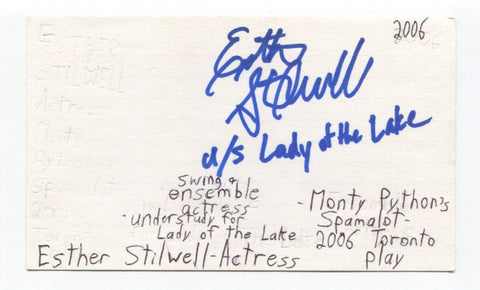 2006
Esther
Stilwell
u/s Lady of the Lake
swing &
ensemble
actress -
- understudy for
Lady of the Lake
- Monty Python's
Spamalot -
2006 Toronto
play
Esther Stilwell - Actress
ESTHER
STILWELL
Actress
Monty
Python's
Spamalot